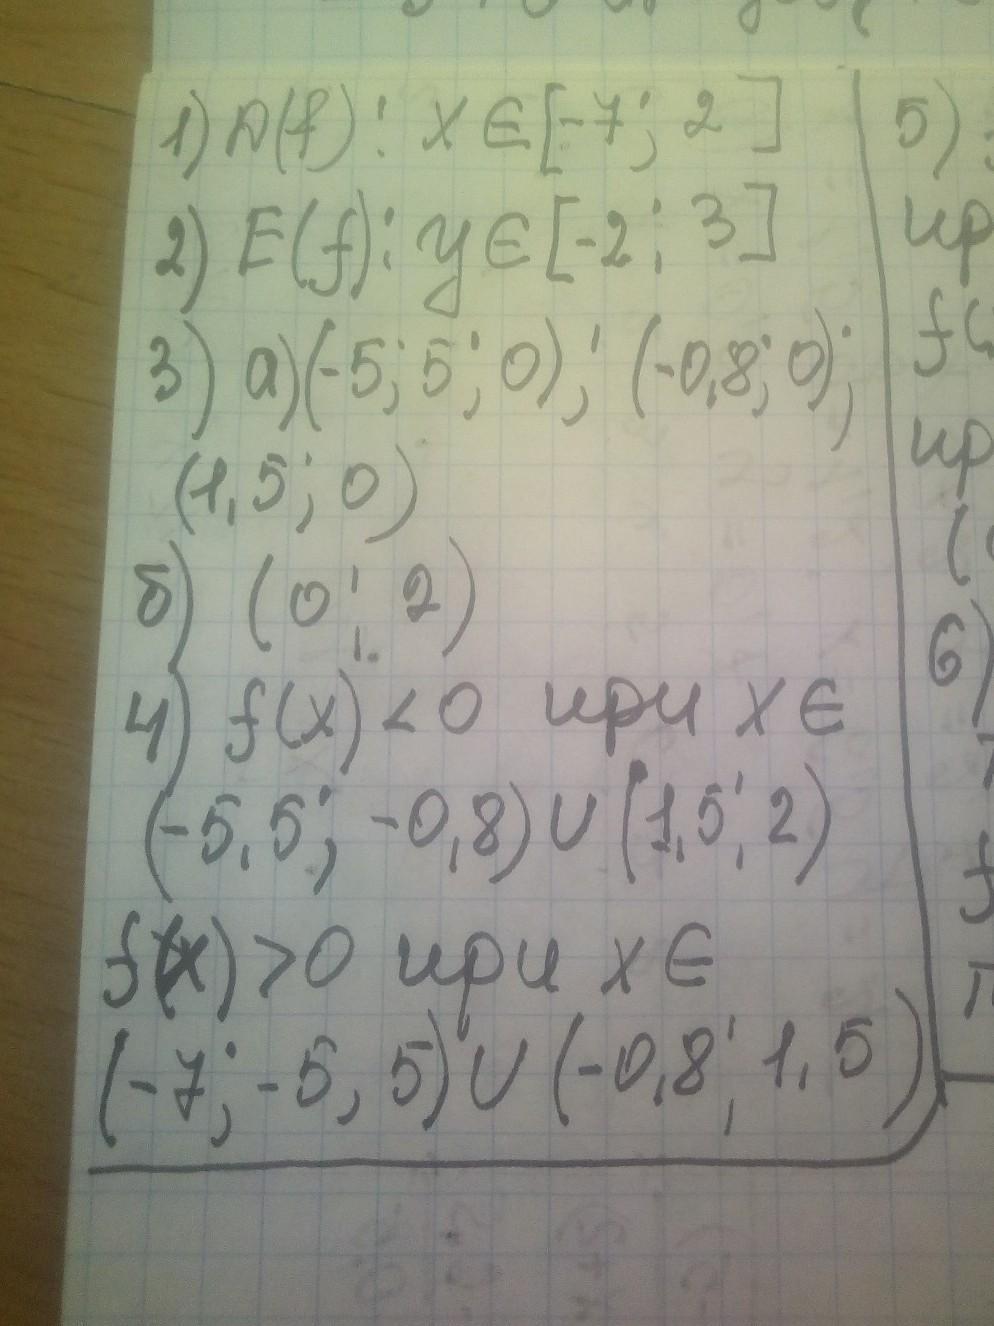 1) D(f): x ∈ [-7; 2]
2) E(f): y ∈ [-2; 3]
3) а) (-5; 5; 0); (-0,8; 0);
(1,5; 0)
б) (0; 2)
4) f(x) < 0 при x ∈
(-5,5; -0,8) ∪ (1,5; 2)
f(x) > 0 при x ∈
(-7; -5,5) ∪ (-0,8; 1,5)
5)
пр
f(
пр
(
6)